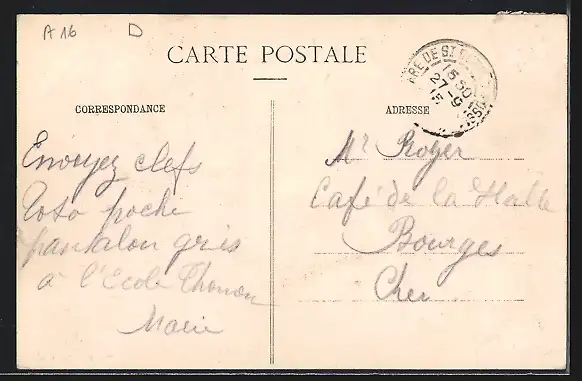 A 16 D
CARTE POSTALE
CORRESPONDANCE
Envoyez clefs
Toto poche
pantalon gris
à l'Ecole Thonon
Marie
ADRESSE
Mr Roger
Café de la Halle
Bourges
Cher
RE DE ST
15 50
27 - 9
15